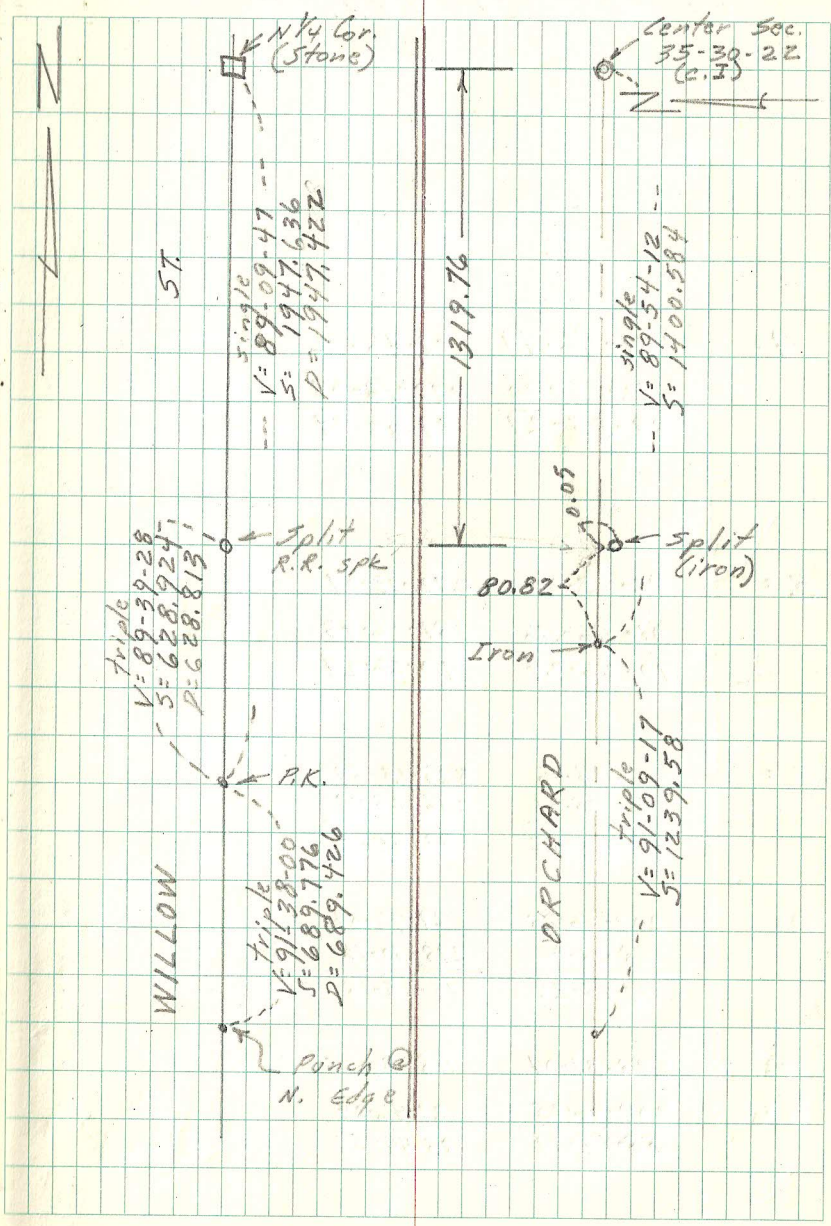 N
N 1/4 Cor.
(Stone)
ST.
single
V= 89-09-47
S= 1947.636
D= 1947.422
Split
R.R. spk
triple
V= 89-39-28
S= 628.924
D= 628.813
P.K.
WILLOW
triple
V= 91-38-00
S= 689.776
D= 689.426
Punch @
N. Edge
Center Sec.
35-30-22
(C.I)
N
1319.76
single
V= 89-54-12
S= 1400.584
0.05
Split
(iron)
80.82
Iron
ORCHARD
triple
V= 91-09-17
S= 1239.58